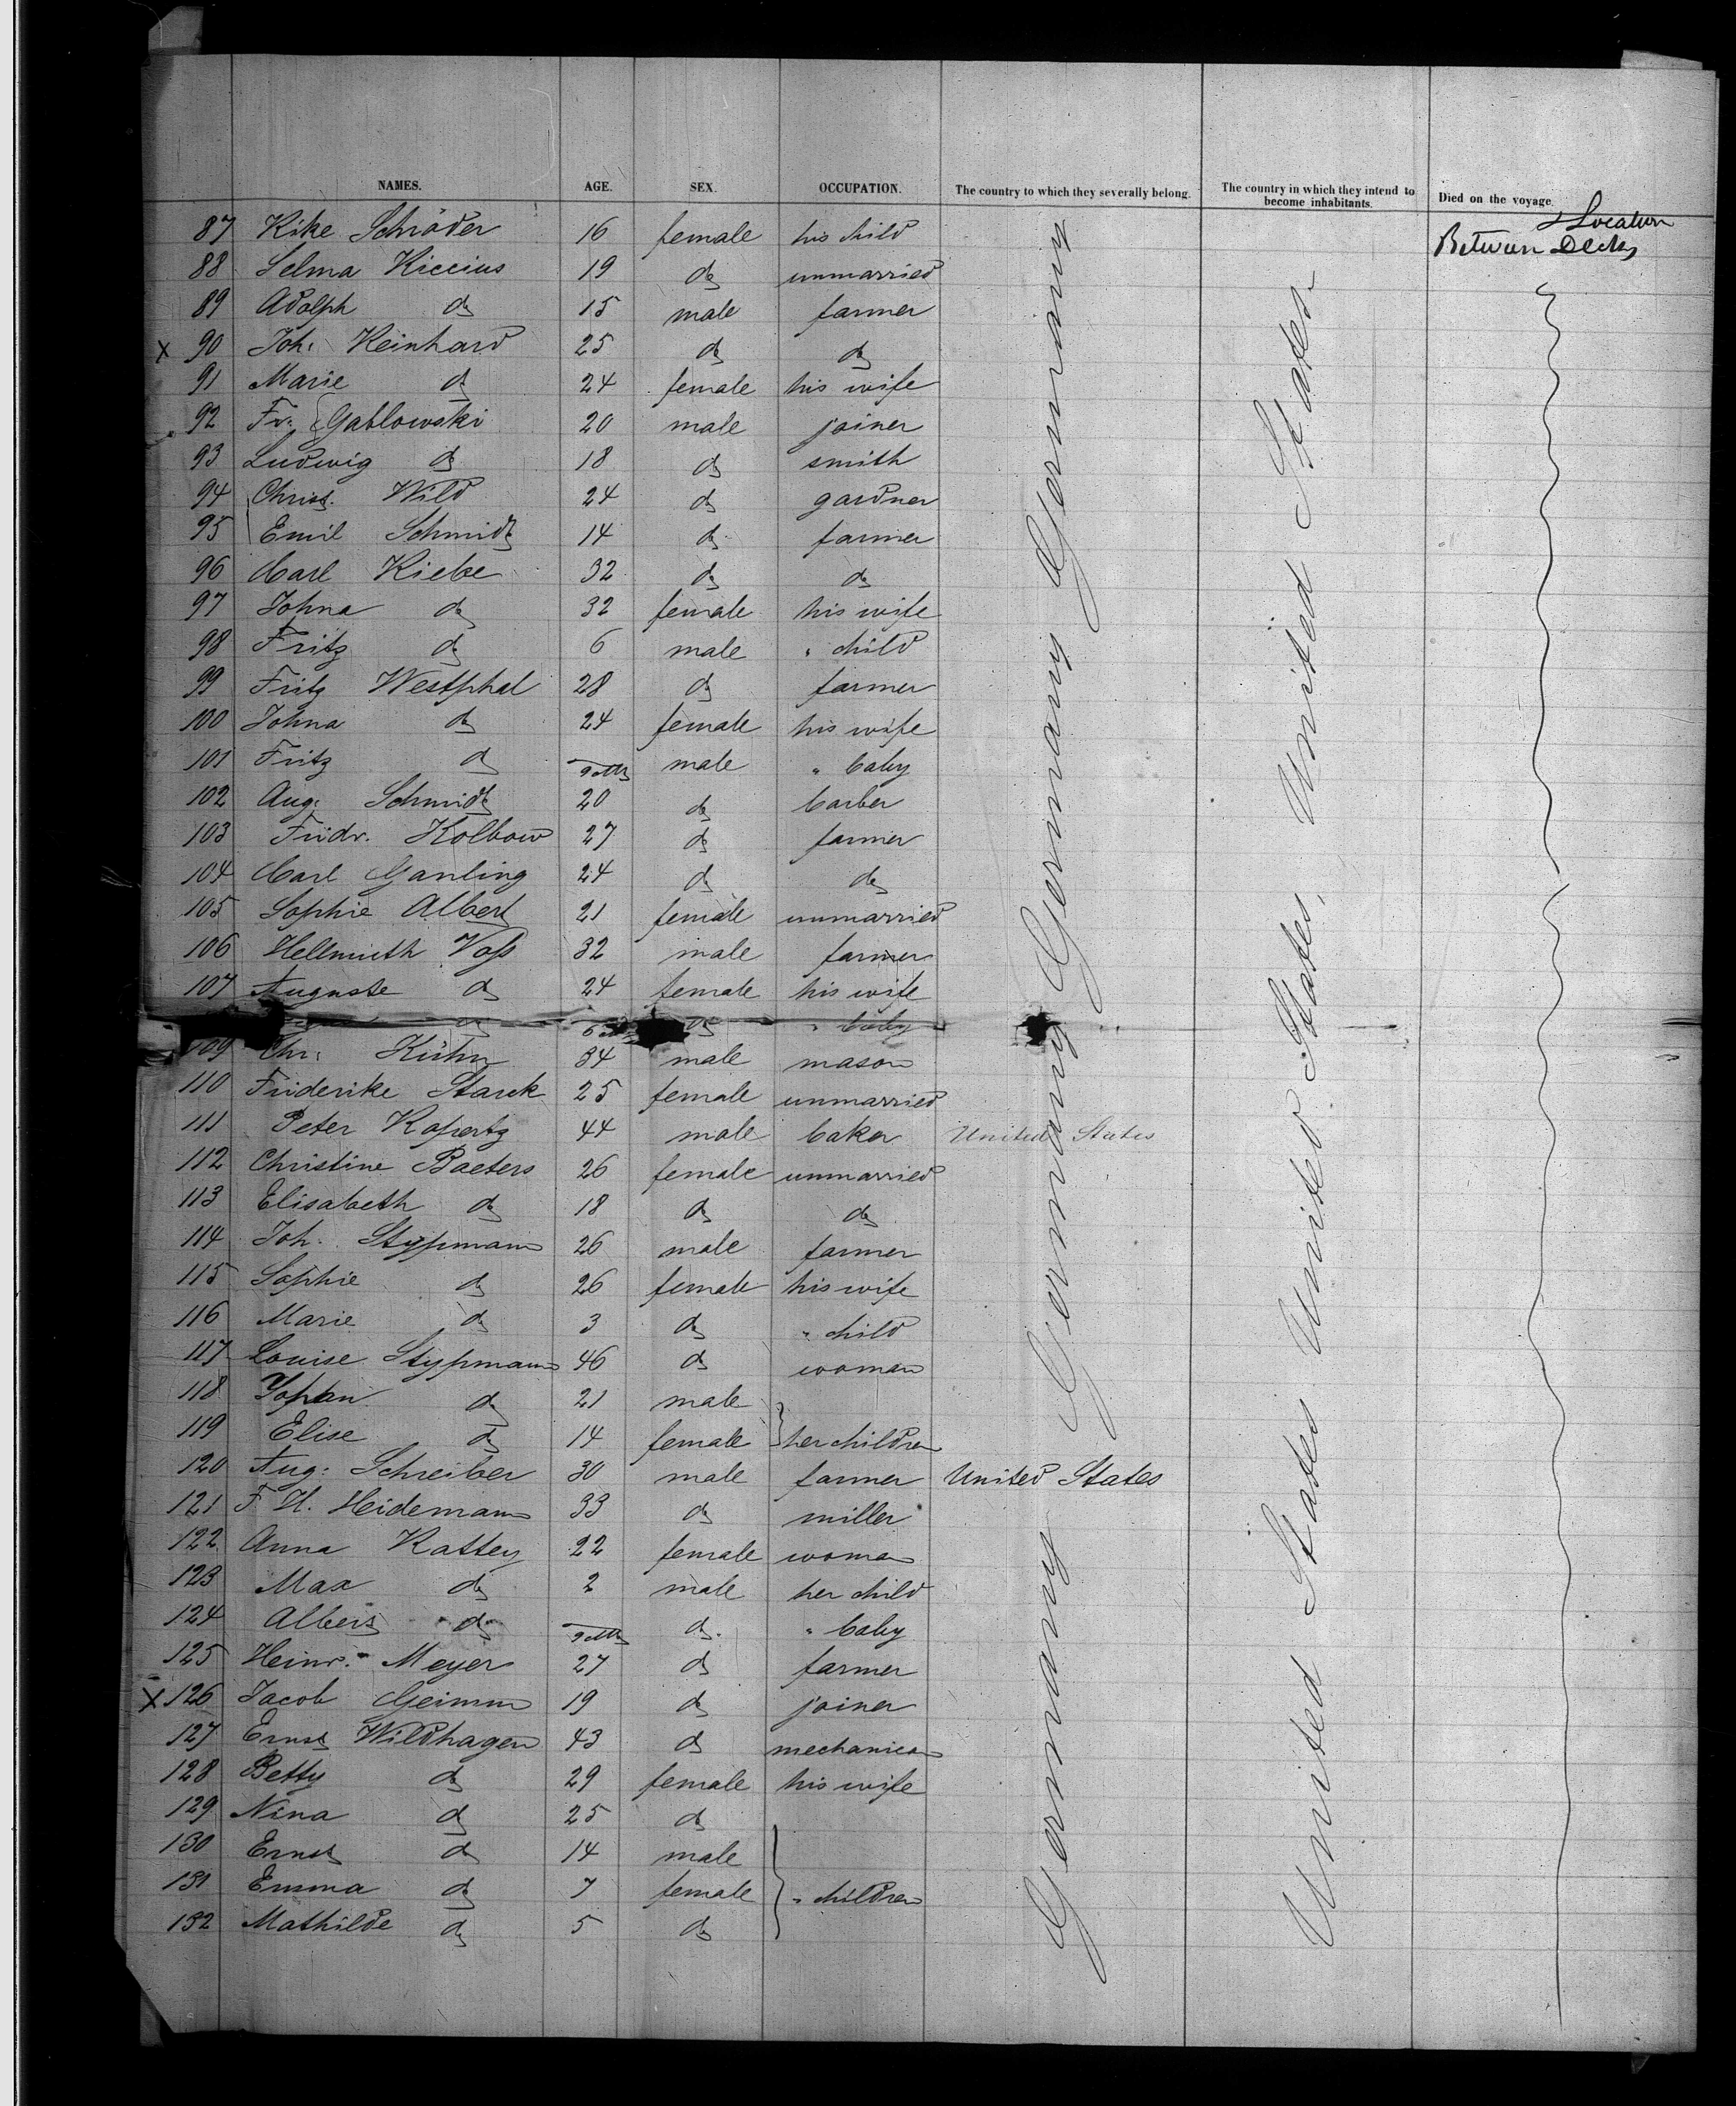 NAMES. AGE. SEX. OCCUPATION. The country to which they severally belong. The country in which they intend to become inhabitants. Died on the voyage.
& Location
Between Decks
87 Rike Schröder 16 female his child
88 Selma Riccius 19 do unmarried
89 Adolph do 15 male farmer
x 90 Joh. Reinhard 25 do do
91 Marie do 24 female his wife
92 Fr. Gablowski 20 male joiner
93 Ludwig do 18 do smith
94 Christ. Wild 24 do gardner
95 Emil Schmidt 14 do farmer
96 Carl Kiebe 32 do do
97 Johna do 32 female his wife
98 Fritz do 6 male " child
99 Fritz Westphal 28 do farmer
100 Johna do 24 female his wife
101 Fritz do 9 mths male " baby
102 Aug. Schmidt 20 do barber
103 Friedr. Kolbow 27 do farmer
104 Carl Ganling 24 do do
105 Sophie Albert 21 female unmarried
106 Hellmuth Voß 32 male farmer
107 Auguste do 24 female his wife
do 6 do " baby
109 Chr. Kühn 34 male mason
110 Friderike Starck 25 female unmarried
111 Peter 44 male baker United States
112 Christine Baeters 26 female unmarried
113 Elisabeth do 18 do do
114 Joh. Stypmann 26 male farmer
115 Sophie do 26 female his wife
116 Marie do 3 do " child
117 Louise Stypmann 46 do woman
118 Johan do 21 male
119 Elise do 14 female her children
120 Aug. Schreiber 30 male farmer United States
121 F. H. Heidemann 33 do miller
122 Anna Rattey 22 female woman
123 Max do 2 male her child
124 Albert do 9 mths do " baby
125 Heinr. Meyer 27 do farmer
x 126 Jacob Geimm 19 do joiner
127 Ernst Wildhagen 43 do mechanican
128 Betty do 29 female his wife
129 Nina do 25 do
130 Ernst do 14 male
131 Emma do 7 female " children
132 Mathilde do 5 do
Germany Germany Germany Germany Germany
United States United States, United States